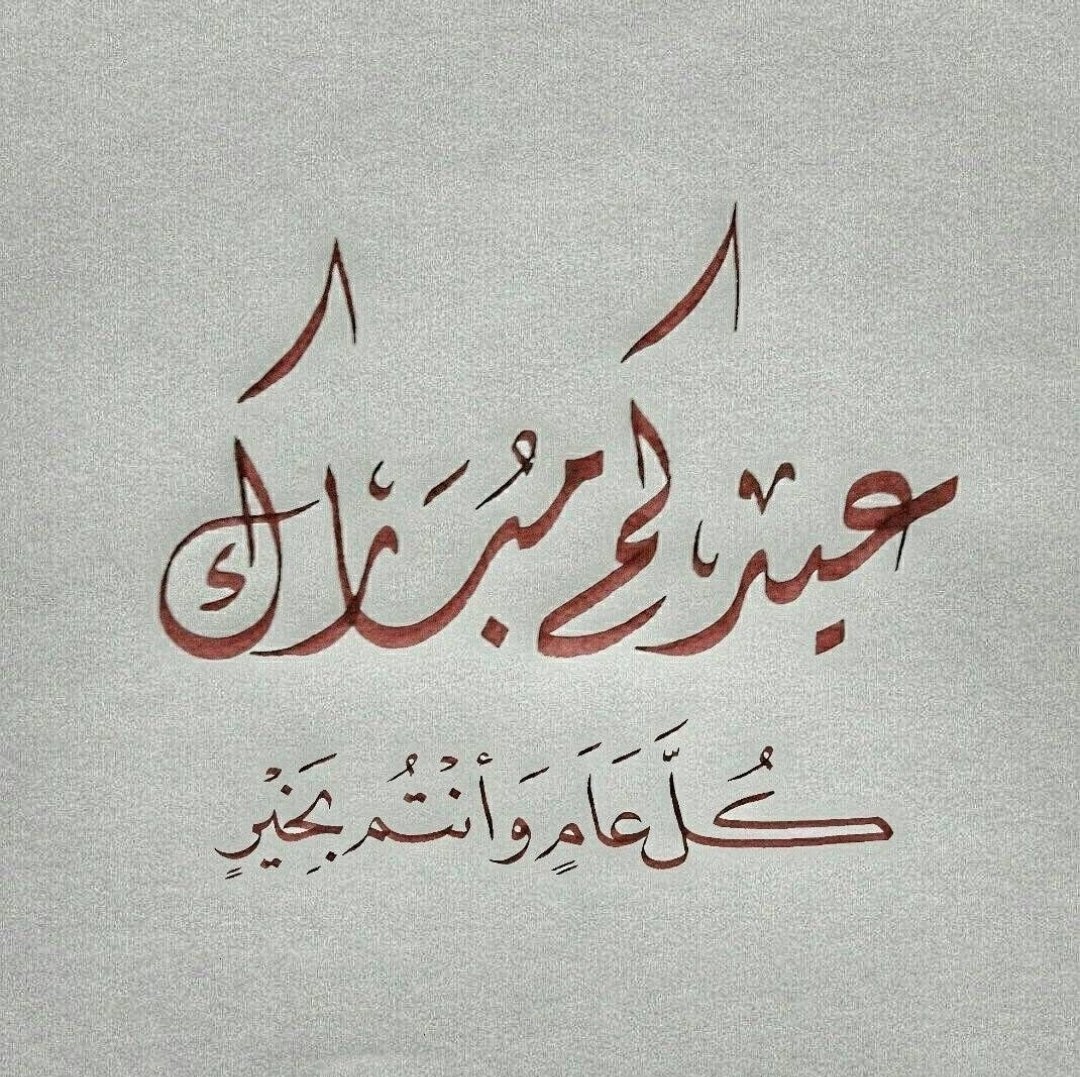 عيدكم مُبَارك
كُلَّ عَامٍ وَأنْتُم بِخَيْرٍ